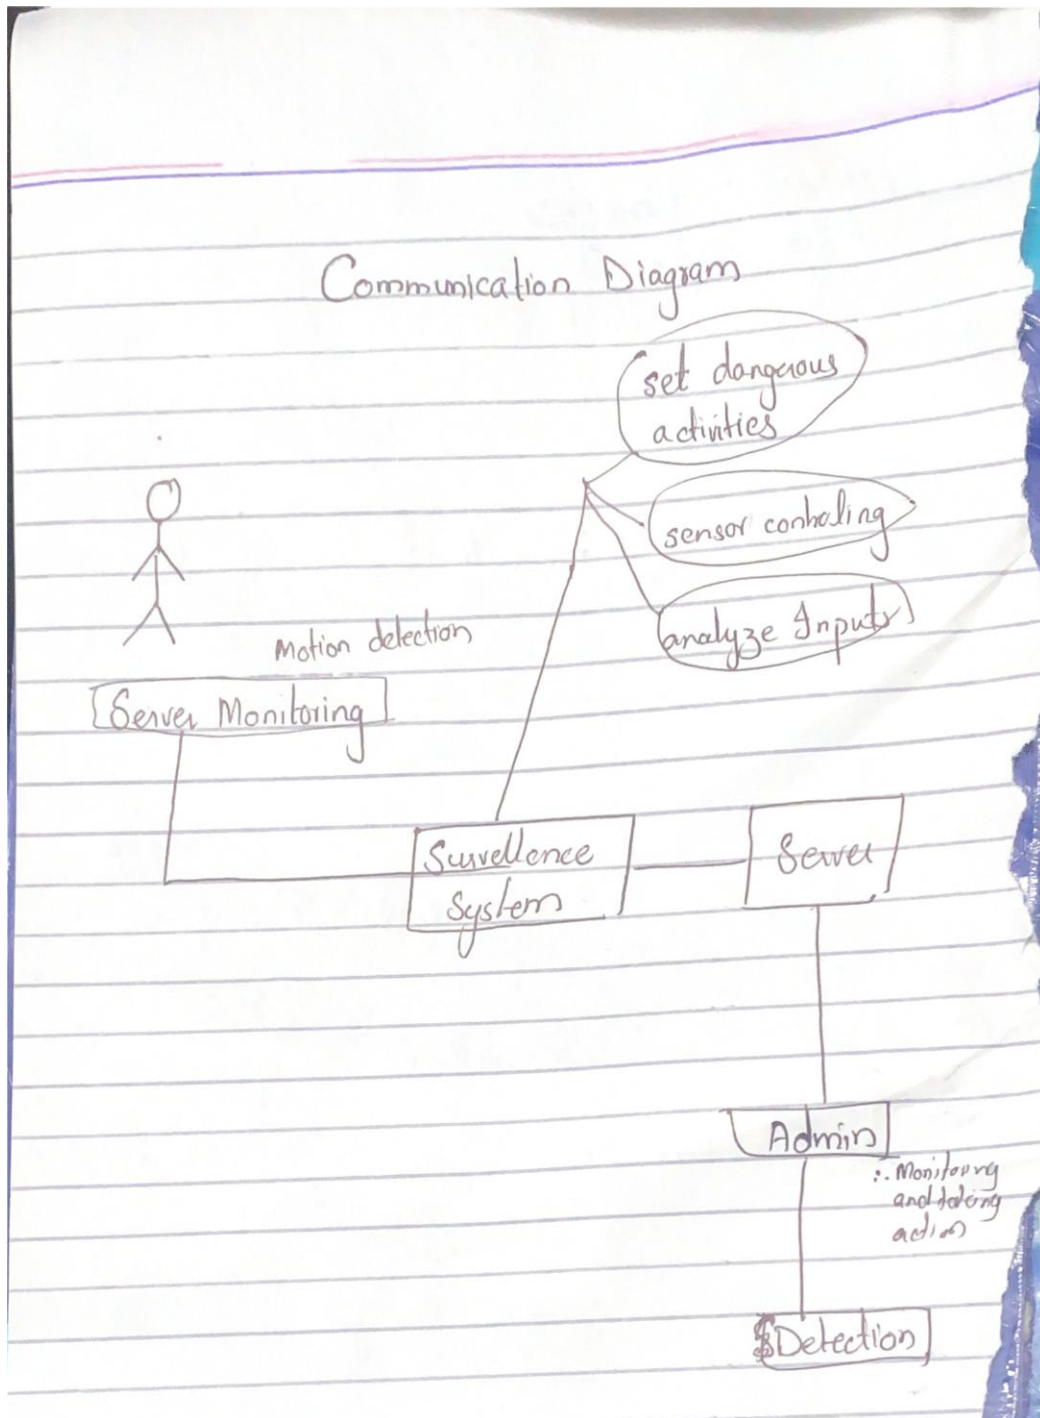 Communication Diagram
set dangerous
activities
sensor controling
analyze Inputs
Motion detection
Server Monitoring
Survellence
System
Server
Admin
∴ Monitoring
and taking
action
Detection